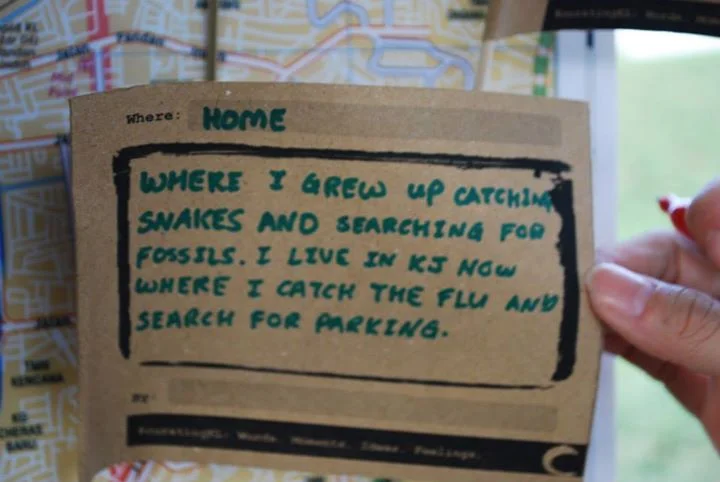 Where: HOME
WHERE I GREW UP CATCHING
SNAKES AND SEARCHING FOR
FOSSILS. I LIVE IN KJ NOW
WHERE I CATCH THE FLU AND
SEARCH FOR PARKING.
BY:
#CuratingKL: Words. Moments. Ideas. Feelings.